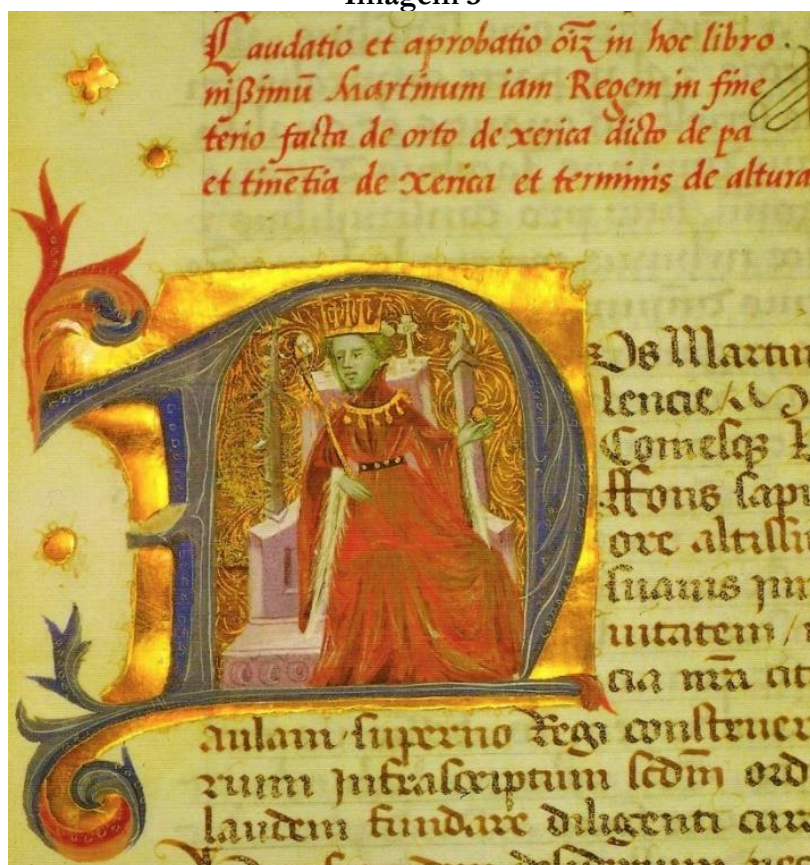 Imagem 3
Laudatio et aprobatio oīz in hoc libro
nißimū Martinum iam Regem in fine
terio facta de orto de xerica dicto de pa
et tinētia de xerica et terminis de altura
Nos Martin
lencie
Comesqz
ffons sapi
ore altissi
suavis
uitatem
cia nr̄a cit
aulam superno Regi construer
rum Infrascriptum scd̄m ord
laudem fundare diligenti cura